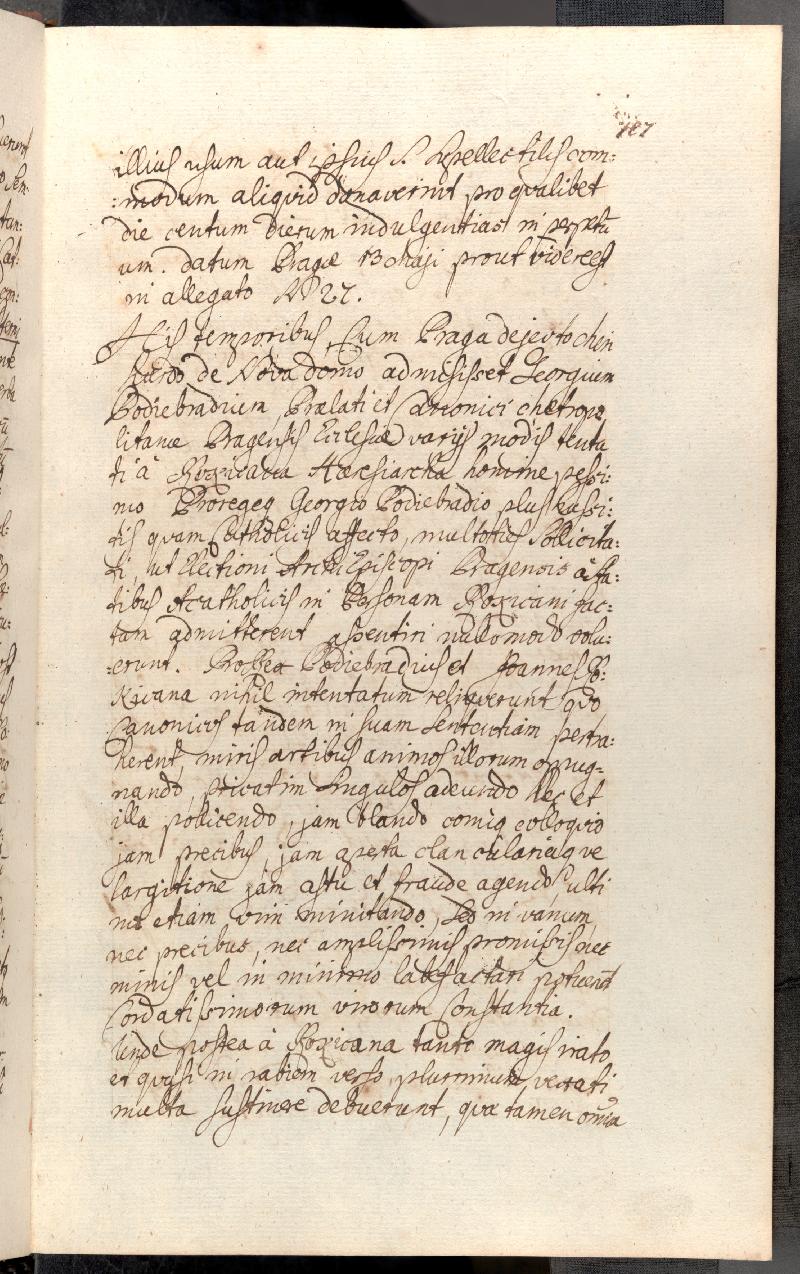 107
illius usum aut ipsius S. supellectilis com:
:modum aliquid donaverint pro qualibet
die centum dierum indulgentias in perpetu
um. datum Pragæ 13 Maji prout videre est
in allegato No 27.
His temporibus, cum Praga dejecto Mein
hardo de Nova domo admisisset Georgium
Podiebradium, Prælati et Canonici Metropo
litanæ Pragensis Ecclesiæ varijs modis tenta
ti à Rozicana Hæresiarcha homine pessi:
mo Proregeq Georgio Podiebradio plus Hussi:
tis quam Catholicis affecto, multoties sollicita:
ti, ut Electioni Archi Episcopi Pragensis à sta:
tibus Acatholicis in Personam Rozicani fac:
tam admitterent assentiri nullo modo volu:
:erunt. Prorex Podiebradius et Joannes Ro:
Kicana nihil intentatum reliqverunt quo
Canonicos tandem in suam sententiam pertra:
herent, miris artibus animos illorum oppug-
nando, privatim singulos adeundo hæc et
illa pollicendo, jam blando comiq colloqvio
jam precibus, jam aperta clancularia qve
largitione jam astu et fraude agendo, ulti
mo etiam vim minitando, sed in vanum,
nec precibus, nec amplissimis promissis nec
minis vel in minimo labefactari potuerunt
Cordatissimorum virorum Constantia.
Unde postea à Rozicana tanto magis irato
et quasi in rabiem verso plurimum vexati
multa sustinere debuerunt, quæ tamen omnia